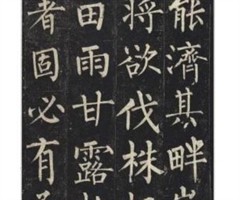 能濟其畔
將欲伐株
田雨甘露
者固必有